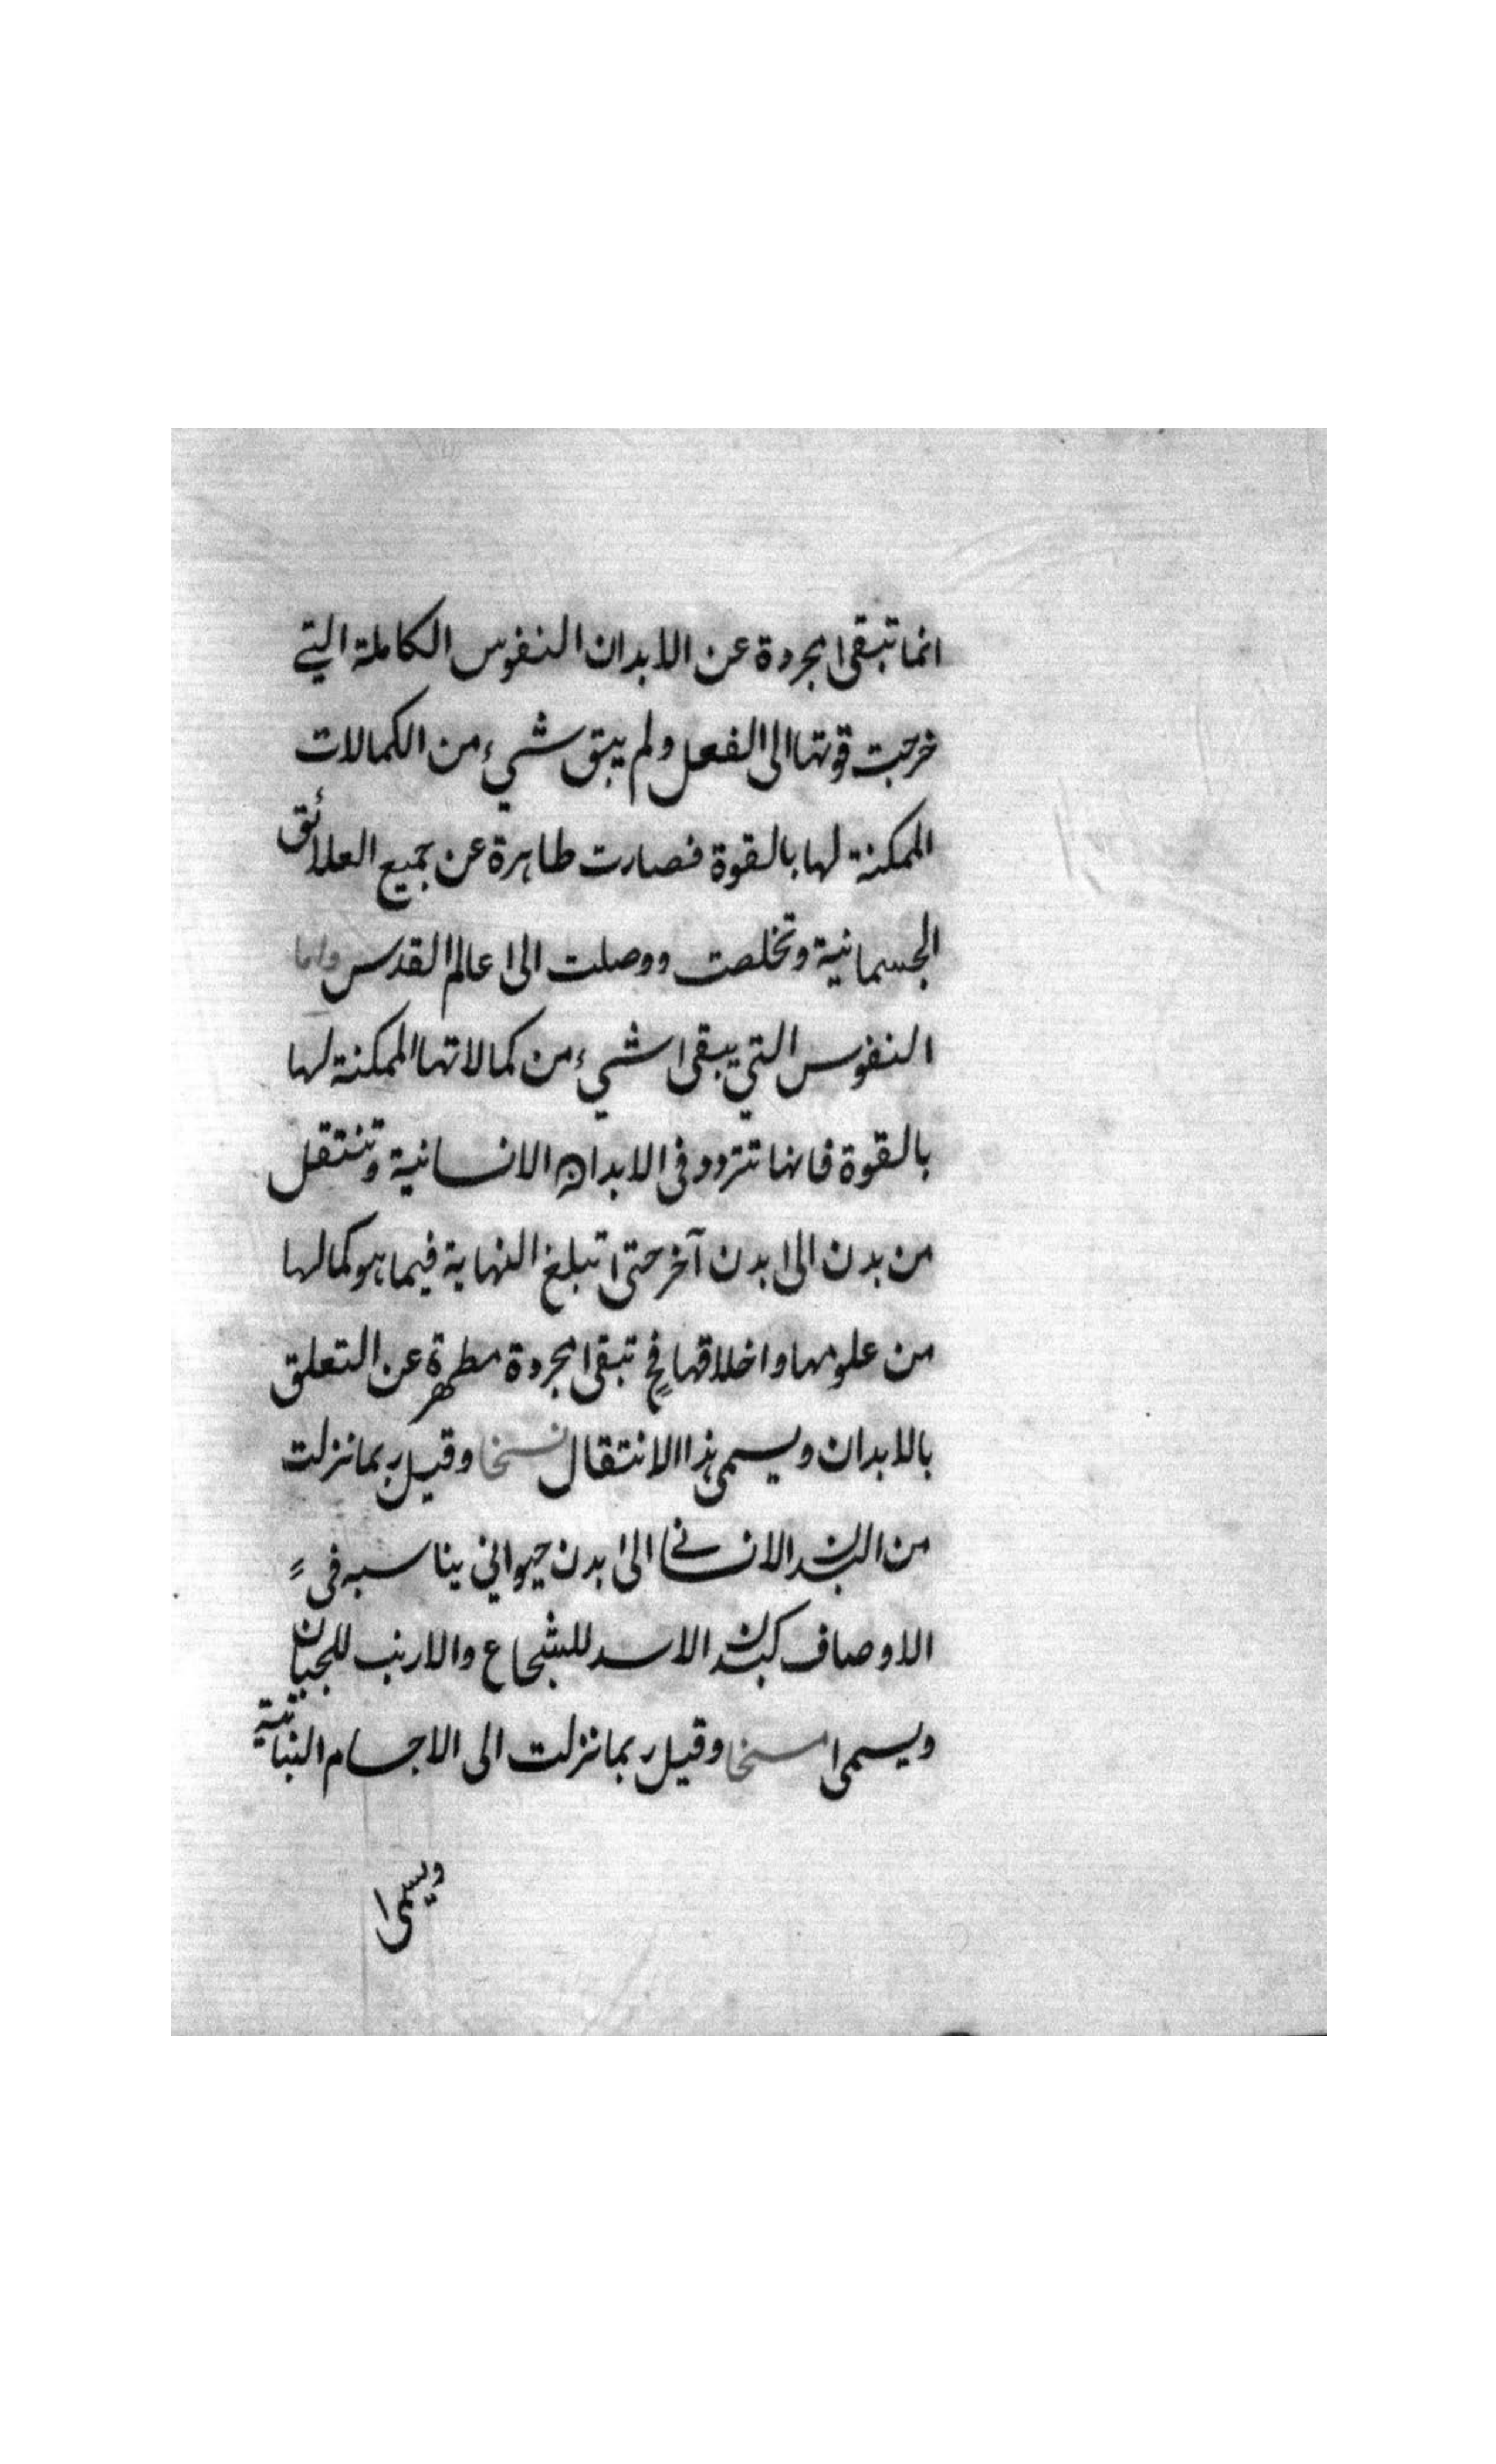 انما تبقى مجردة عن الابدان النفوس الكاملة التي
خرجت قوتها الى الفعل ولم يبق شيء من الكمالات
الممكنة لها بالقوة فصارت طاهرة عن جميع العلائق
الجسمانية وتخلصت ووصلت الى عالم القدس واما
النفوس التي يبقى شيء من كمالاتها الممكنة لها
بالقوة فانها تتردد فى الابدان الانسانية وتنتقل
من بدن الى بدن آخر حتى تبلغ النهاية فيما هو كمالها
من علومها واخلاقها فح تبقى مجردة مطهرة عن التعلق
بالابدان ويسمى هذا الانتقال نسخا وقيل ربما نزلت
من البدن الانسانے الى بدن حيواني يناسبه فى
الاوصاف كبدن الاسد للشجاع والارنب للجبان
ويسمى مسخا وقيل ربما نزلت الى الاجسام النباتية
ويسمى